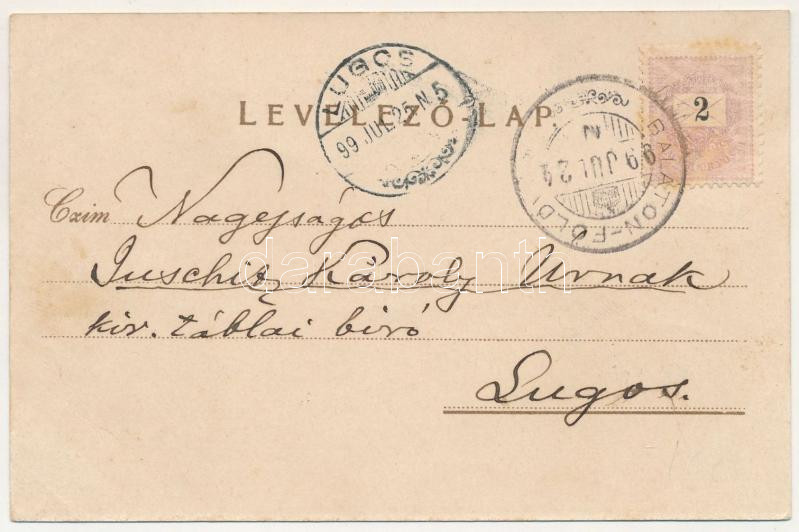 LEVELEZŐ-LAP.
LUGOS
99 JUL 25 N. 5
BALATON-FÖLD
99 JUL 24
N
2
Czim Nagyságos
Juschitz Károly Urnak
kir. táblai biró
Lugos.
darabanth